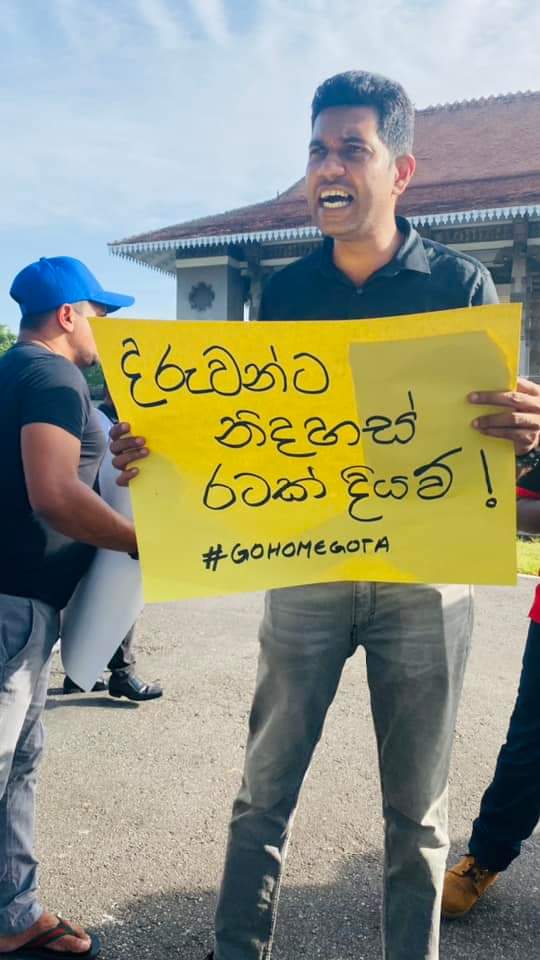 දිරුවන්ට
නිදහස්
රටක් දියව් !
#GOHOMEGOTA